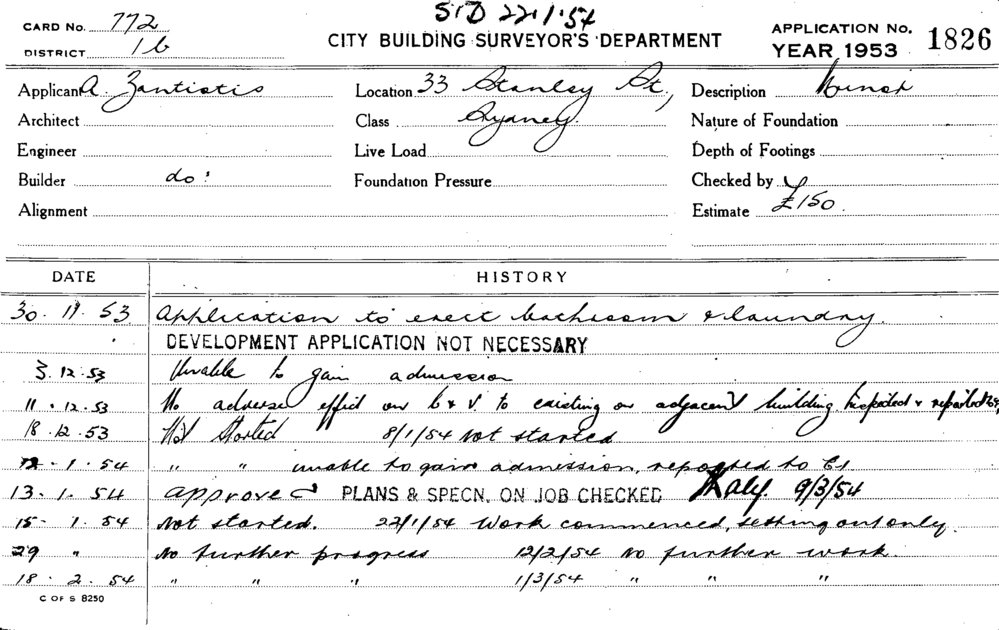 CARD NO. 772
S'D 22.1.54
APPLICATION NO. 1826
DISTRICT 1b
CITY BUILDING SURVEYOR'S DEPARTMENT
YEAR 1953
Applicant A. Zantiotis
Location 33 Stanley St.,
Description
Architect
Class Sydney.
Nature of Foundation
Engineer
Live Load
Depth of Footings
Builder do.
Foundation Pressure
Checked by
Alignment
Estimate £150.
DATE HISTORY
30. 11. 53 Application to erect bathroom & laundry.
DEVELOPMENT APPLICATION NOT NECESSARY
3.12.53 Unable to gain admission
11.12.53 No adverse effect on L & V. to existing or adjacent building. Inspected & reported
18.12.53 Not Started 8/1/54 not started
12.1.54 " " unable to gain admission, reported to
13.1.54 approved PLANS & SPECN. ON JOB CHECKED 9/3/54
15.1.54 Not started. 22/1/54 Work commenced, setting out only.
29 " No further progress 12/2/54 No further work.
18.2.54 " " " 1/3/54 " " "
C OF S 8250